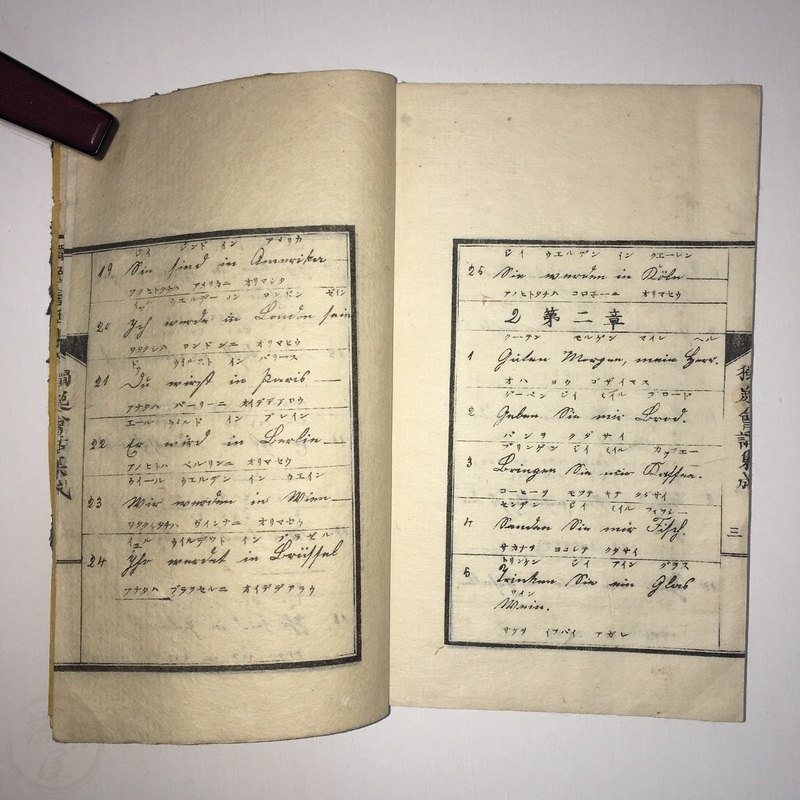 ジイ ジンド イン アメリカ
19 Sie sind in Amerika
アノヒトタチハ アメリカニ オリマシタ
イッヒ ウエルデー イン ロンドン ゼイン
20 Ich werde in London sein
ワタクシハ ロンドンニ オリマセウ
ドウ ウイルスト イン パリース
21 Du wirst in Paris
アナタハ パーリーニ オイデデアロウ
エール ウイルド イン ブレイン
22 Er wird in Berlin
アノヒトハ ベルリンニ オリマセウ
ウイール ウエルデン イン ウエイン
23 Wir werden in Wien
ワタクシタチハ ヴインナニ オリマセウ
イール ウイルデウト イン ブラゼル
24 Ihr werdet in Brüssel
アナタハ ブラクセルニ オイデデアラウ
ジイ ウエルデン イン クエーレン
25 Sie werden in Köln
アノヒトタチハ コロニーニ オリマセウ
2 第二章
クーテン モルゲン マイン ヘル
1 Guten Morgen, mein Herr.
オハ ヨウ ゴザイマス
ゲーベン ジイ ミイル ブロード
2 Geben Sie mir Brod.
パンヲ クダサイ
ブリンゲン ジイ ミイル カッフエー
3 Bringen Sie mir Kaffee.
コーヒーヲ モツテ キテ クダサイ
センデン ジイ ミイル フィッシー
4 Senden Sie mir Fisch.
サカナヲ ヨコシテ クダサイ
トリンケン ジイ アイン グラス
5 Trinken Sie ein Glas
ワイン
Wein.
サケヲ イツパイ アガレ
獨逸會話集成
獨逸會話集成
三